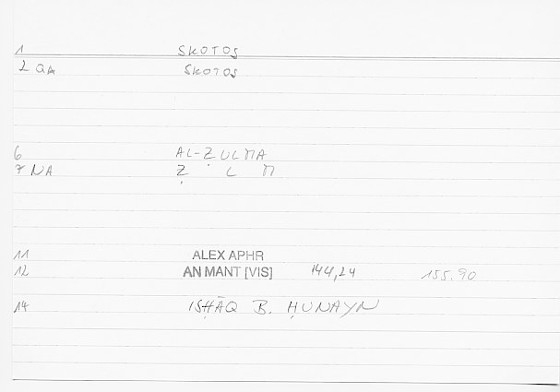 1 SKOTOS
2 QA SKOTOS
6 AL-ẒULMA
7 NA Ẓ L M
11 ALEX APHR
12 AN MANT [VIS] 144,24 155,90
14 ISḤĀQ B. ḤUNAYN